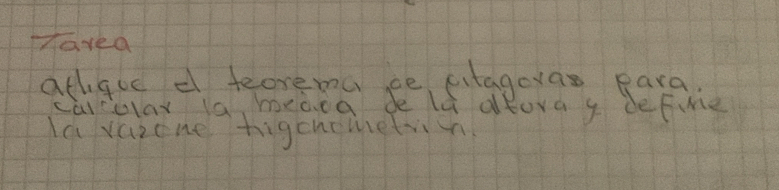 Tarea
aplique el teorema de pitagoras para.
calcular la medida de la altura y define
la razone trigonometrica.